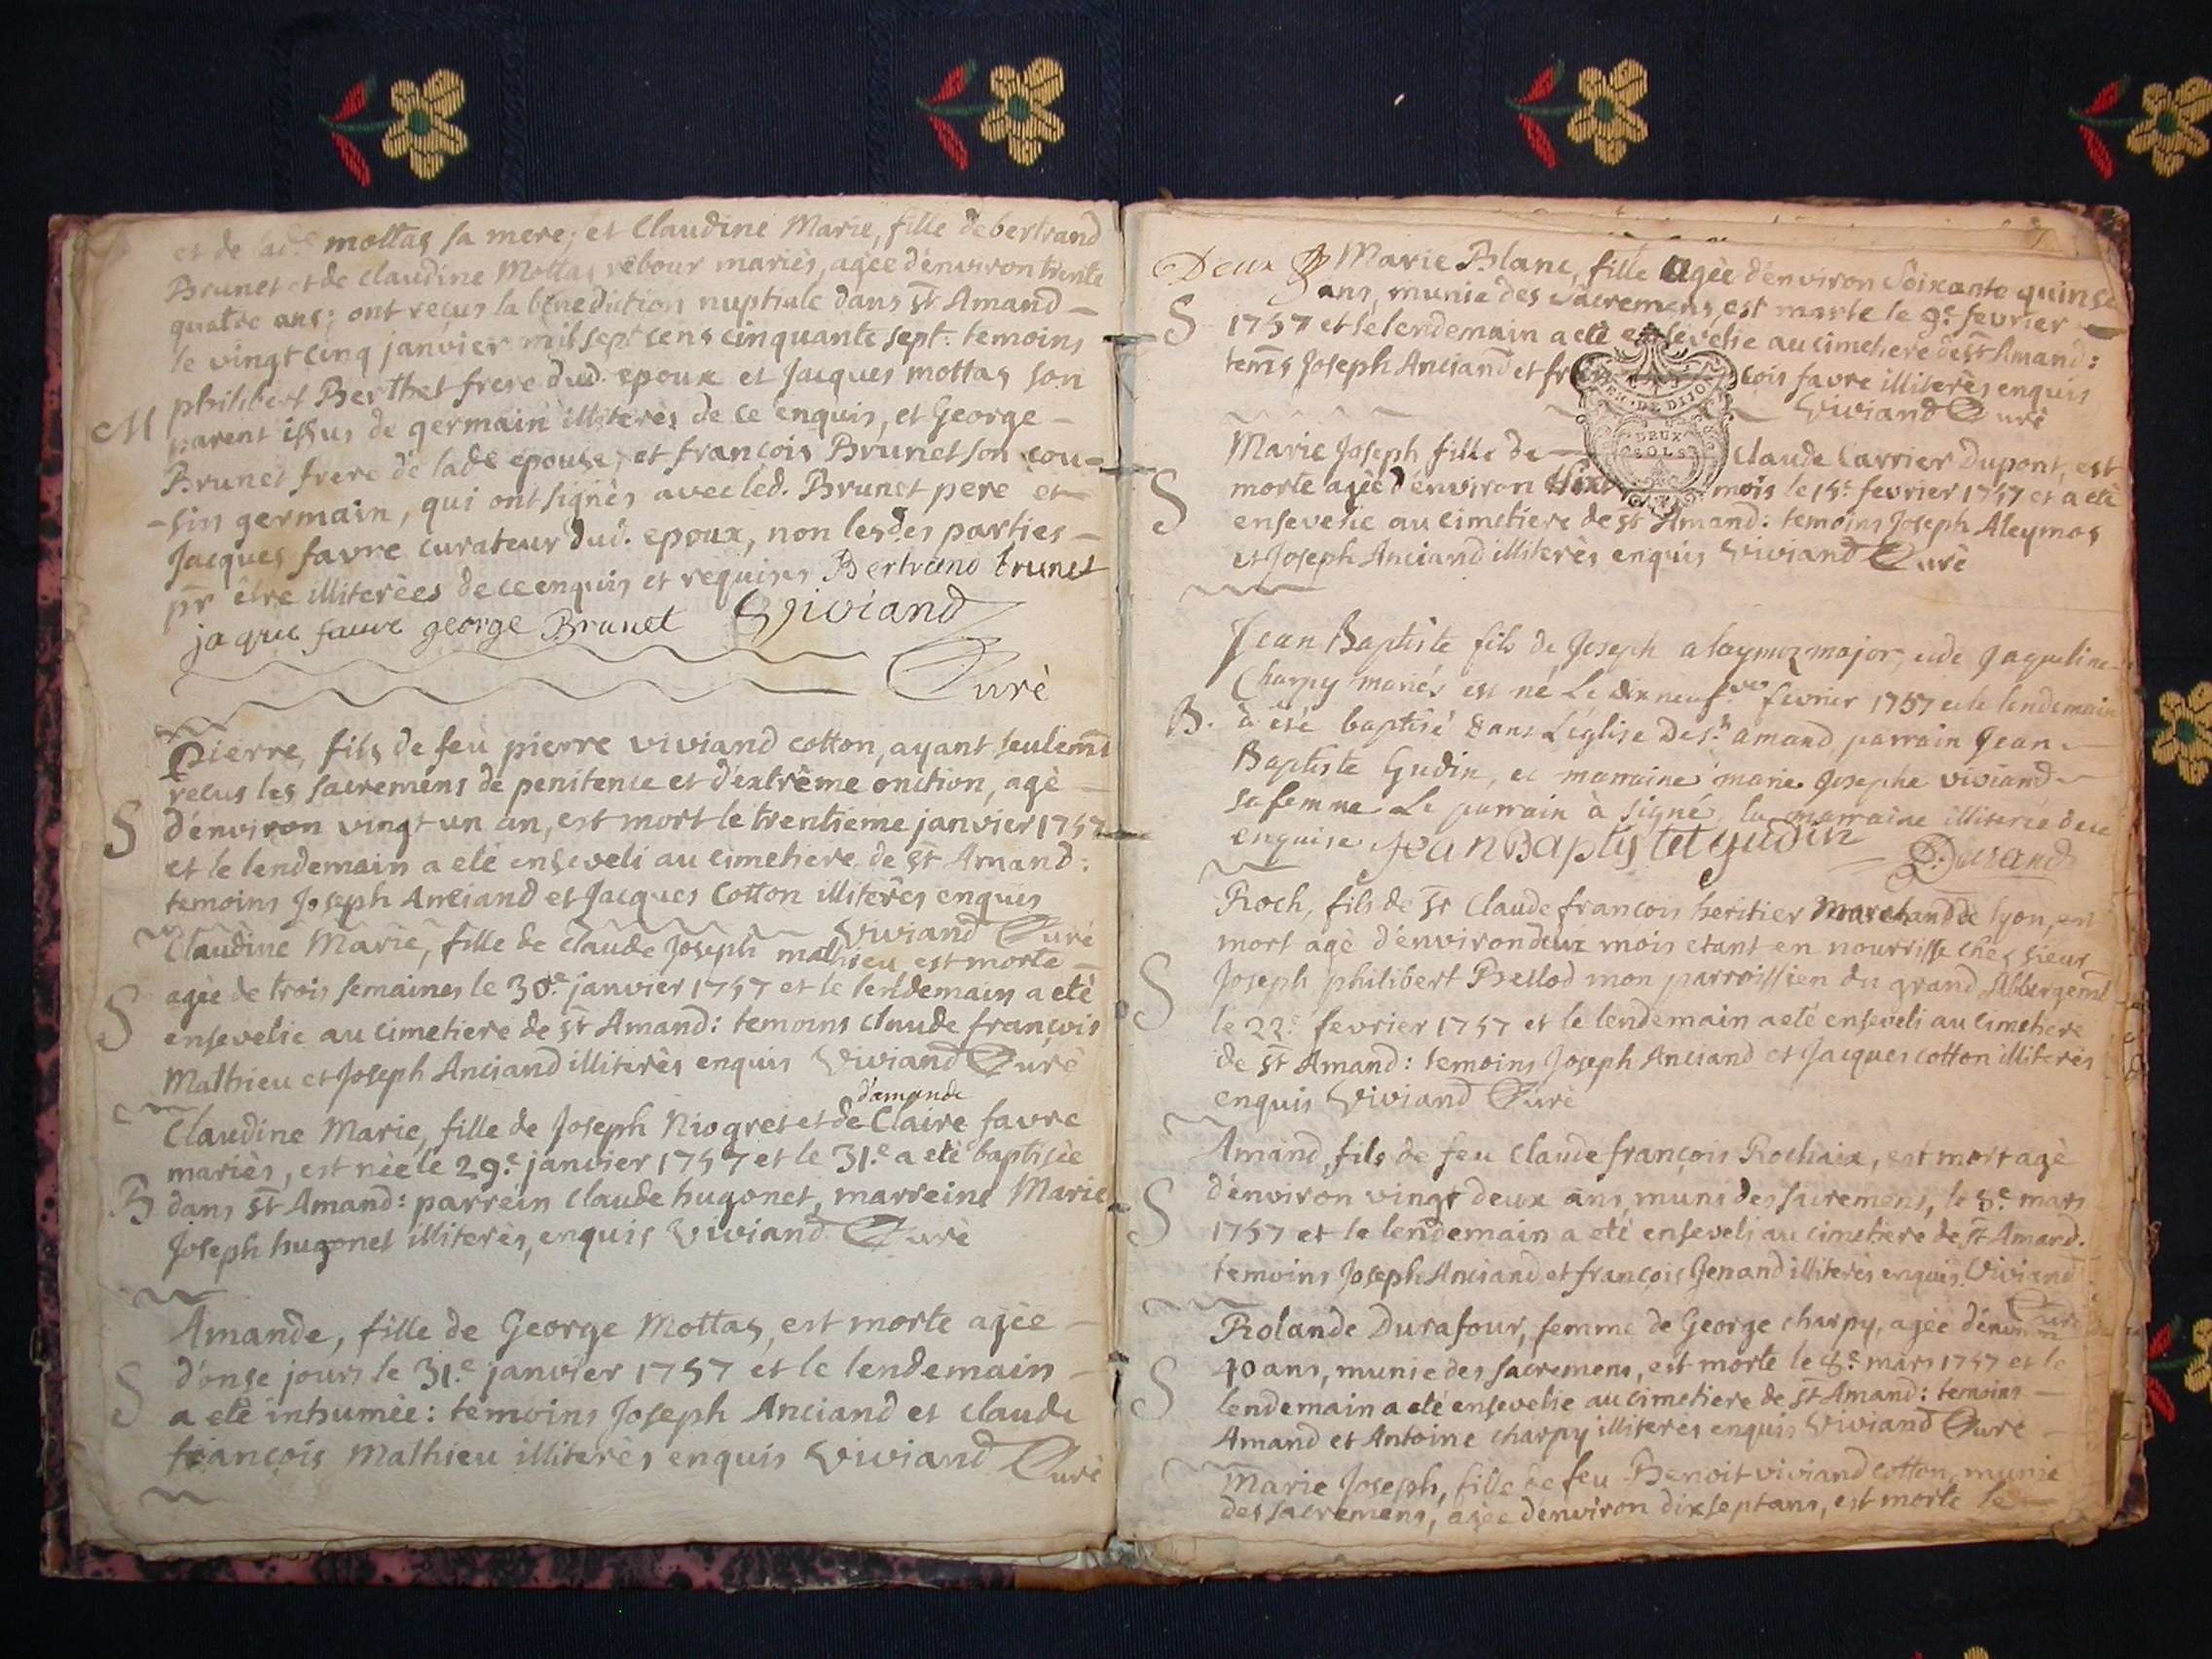 et de lad.e mottas sa mere; et Claudine Marie, fille de bertrand
Brunet et de Claudine Mottas rebour mariès, agée d'environ trente
quatre ans; ont reçus la bénediction nuptiale dans st Amand
le vingt cinq janvier mil sept cens cinquante sept: temoins
philibert Berthet frere dud. epoux et Jacques mottas son
M parent issus de germain illiterès de ce enquis, et George
Brunet frere de lad.e epouse, et françois Brunet son cou-
-sin germain, qui ont signès avec led. Brunet pere et
Jacques favre curateur dud. epoux, non lesdes parties
pr être illiterées de ce enquis et requises Bertrand brunet
jaque fauvre george Brunet Viviand
Curè
Pierre, fils de feu pierre viviand cotton, ayant seulemt
reçus les sacremens de penitence et d'extrême onction, agè
S d'environ vingt un an, est mort le trentieme janvier 1757
et le lendemain a eté enseveli au cimetiere de st Amand:
temoins Joseph Anciand et Jacques Cotton illiterès enquis
Viviand Curè
Claudine Marie, fille de Claude Joseph mathieu est morte
S agée de trois semaines le 30.e janvier 1757 et le lendemain a etè
ensevelie au cimetiere de st Amand: temoins claude françois
Mathieu et Joseph Anciand illiterès enquis Viviand Curè
d'amande
Claudine Marie, fille de Joseph Niogret et de Claire favre
mariès, est née le 29.e janvier 1757 et le 31.e a eté baptisèe
B dans st Amand: parrein Claude hugonet, marreine Marie
Joseph hugonet illiterès, enquis Viviand Curè
Amande, fille de George Mottas, est morte agée
S d'onze jours le 31.e janvier 1757 et le lendemain
a etè inhumèe: temoins Joseph Anciand et claude
françois Mathieu illiterès enquis Viviand Curè
Deux Marie Blanc, fille agèe d'environ Soixante quinse
S ans, munie des Sacremens, est morte le 9.e fevrier
1757 et le lendemain a etè ensevelie au cimetiere de st Amand:
tems Joseph Anciand et fran çois favre illiterès enquis
GEN. DE DIJON
DEUX
SOLS
Viviand Curè
Marie Joseph fille de Claude Carrier Dupont, est
S morte agèe d'environ mois le 15.e fevrier 1757 et a etè
ensevelie au cimetiere de st Amand: temoins Joseph Aleymos
et Joseph Anciand illiterès enquis Viviand Curè
Jean Baptiste fils de Joseph alaymoz major, et de Jaqueline
Charpy mariés est né Le dix neuf fevrier 1757 et le lendemain
B. à été baptisé dans L'église de st amand parrain Jean
Baptiste Gudin, et marraine marie Josephe viviand
sa femme Le parrain à signé, la marraine illiterée de ce
enquise Jean Baptistet gudin Durand
Roch, fils de sr Claude françois heritier Marchand de lyon, est
mort agè d'environ deux mois etant en nourrisse chez sieur
S Joseph philibert Bellod mon parroissien du grand Abbergemt
le 22.e fevrier 1757 et le lendemain a eté enseveli au Cimetiere
de st Amand: temoins Joseph Anciand et Jacques cotton illiterès
enquis Viviand Curè
Amand, fils de feu Claude françois Rochaix, est mort agè
S d'environ vingt deux ans, muni des sacremens, le 8.e mars
1757 et le lendemain a etè enseveli au cimetiere de st Amand.
temoins Joseph Anciand et françois Genand illiterès enquis Viviand
Curè
Rolande Durafour, femme de George charpy, agée d'environ
40 ans, munie des sacremens, est morte le 8.e mars 1757 et le
S lendemain a eté ensevelie au cimetiere de st Amand: temoins
Amand et Antoine charpy illiterès enquis Viviand Curè
Marie Joseph, fille de feu Benoit viviand cotton, munie
des sacremens, agée d'environ dix sept ans, est morte le